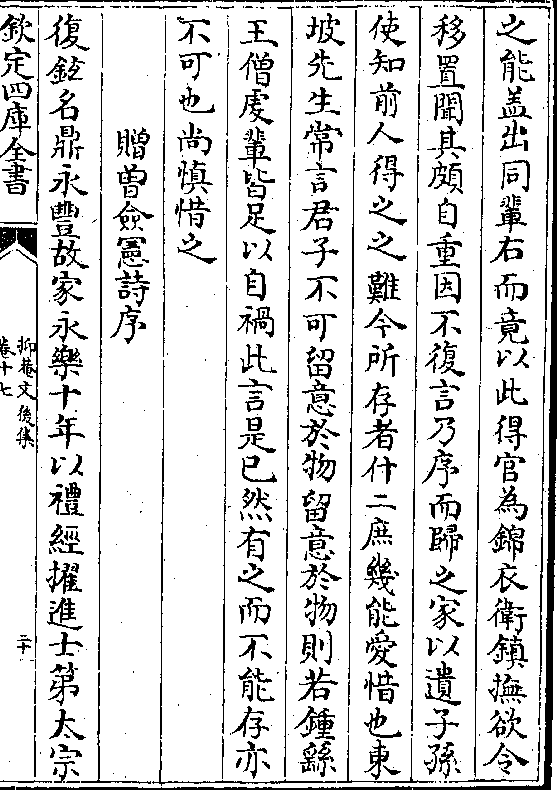 之能盖出同軰右而竟以此得官為錦衣衛鎮撫欲令
移置聞其頗自重因不復言乃序而歸之家以遺子孫
使知前人得之之難今所存者什二庶幾能愛惜也東
坡先生常言君子不可留意於物留意於物則若鍾繇
王僧虔軰皆足以自禍此言是已然有之而不能存亦
不可也尚慎惜之
贈曽僉憲詩序
復鉉名鼎永豐故家永樂十年以禮經擢進士第太宗
欽定四庫全書
抑菴文後集
卷十七
二十